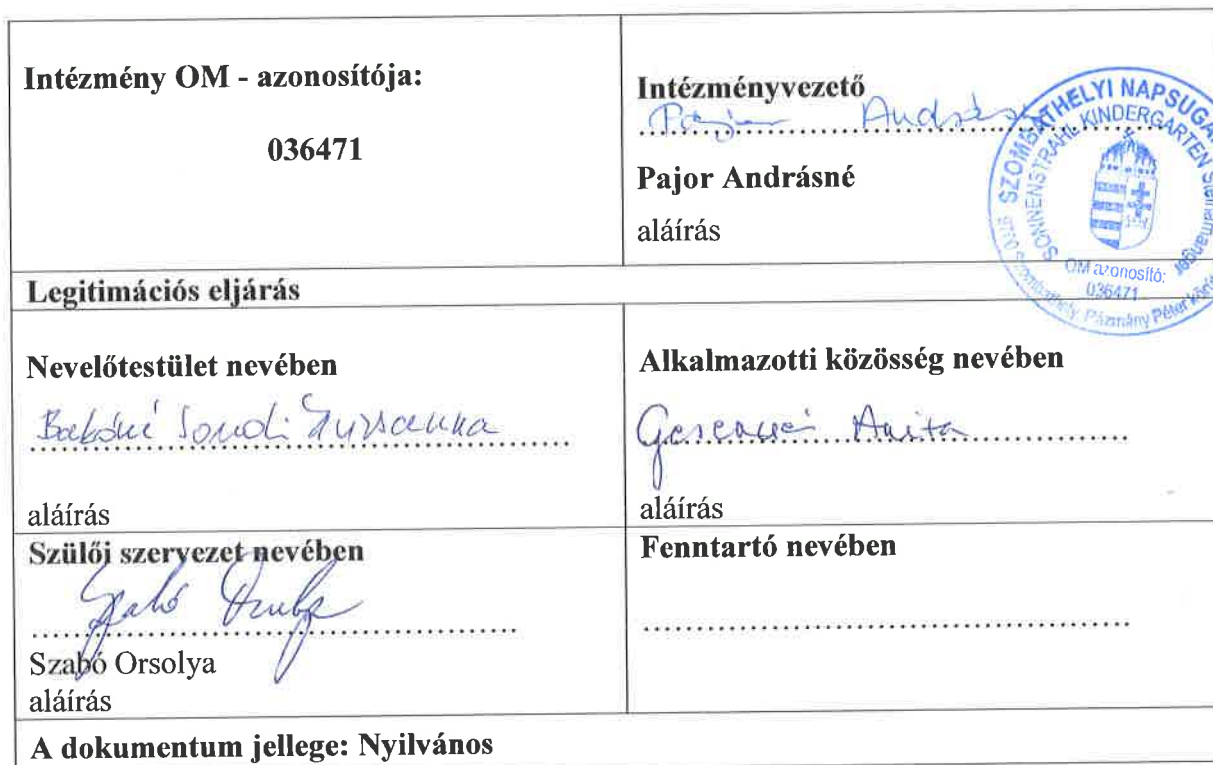 Intézmény OM - azonosítója:
036471
Intézményvezető
Pajor András
Pajor Andrásné
aláírás
SZOMBATHELYI NAPSUGÁR
SONNENSTRAHL KINDERGARTEN Steinamanger
OM azonosító:
036471
9700 Szombathely, Pázmány Péter krt.
Legitimációs eljárás
Nevelőtestület nevében
Bakóné Sondi Zsuzsanna
aláírás
Alkalmazotti közösség nevében
Anita
aláírás
Szülői szervezet nevében
Szabó
Szabó Orsolya
aláírás
Fenntartó nevében
A dokumentum jellege: Nyilvános